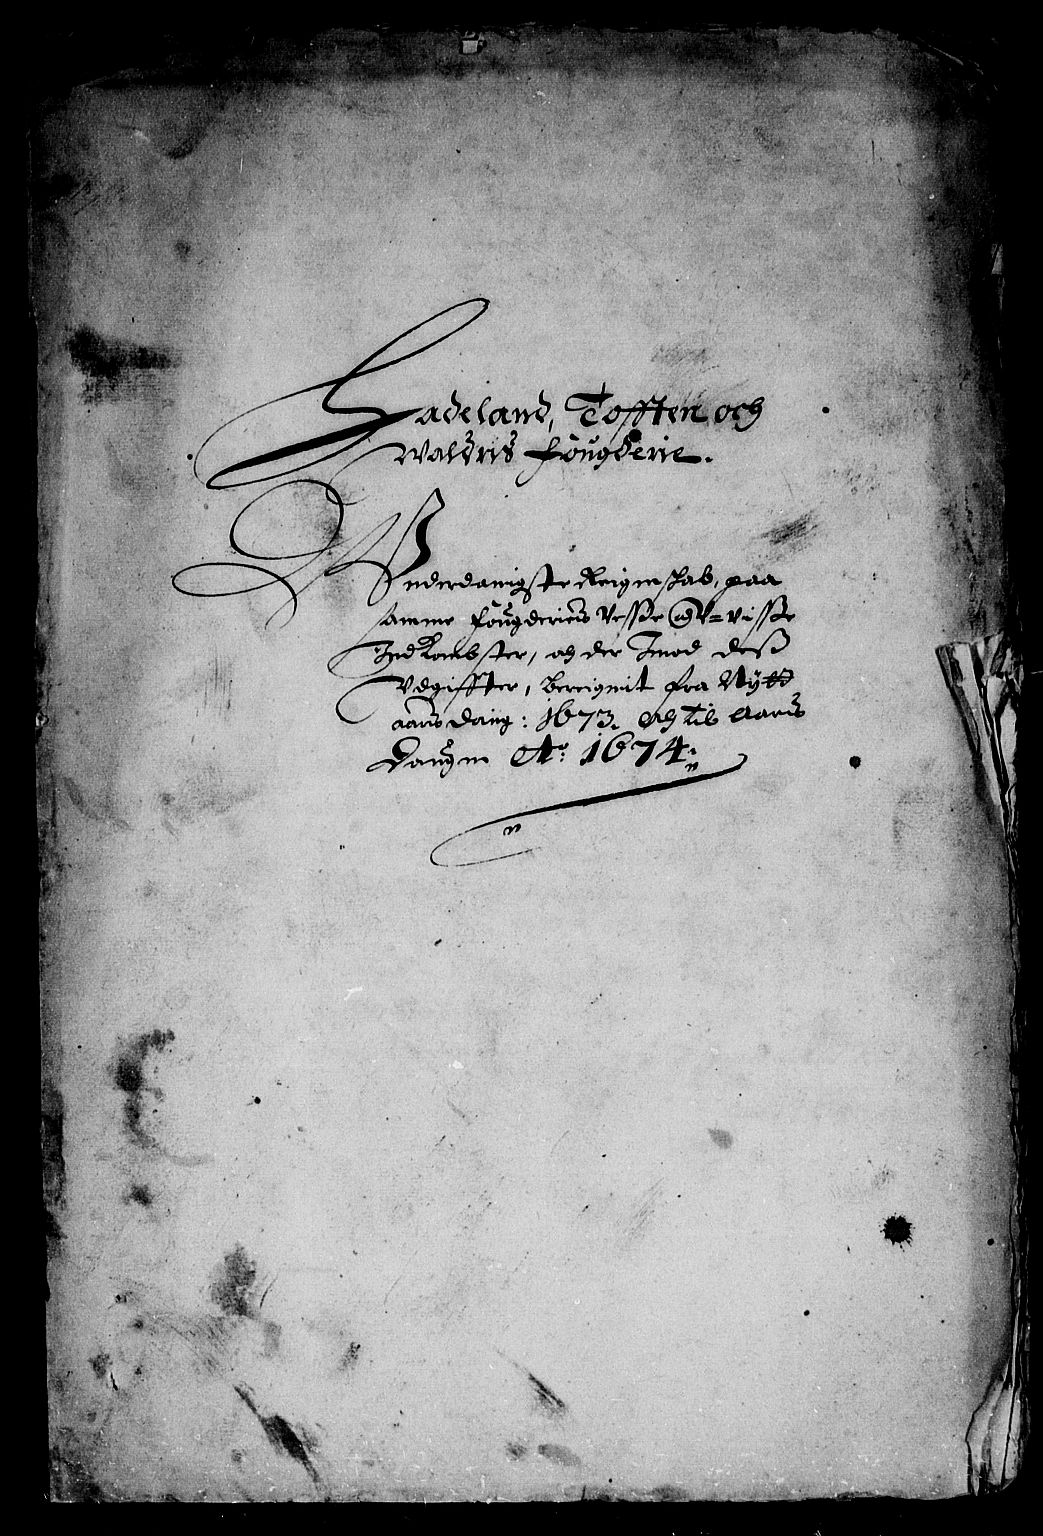 Hadeland, Tofften och
Waldris fougderie.
Underdanigste Reigenskab, paa
samme fougderies Vesse og U=visse
Indkombster, og der Imod dess
Vdgiffter, bereignit fra Nytt
aars daug: 1673. Och til Aars
daugen Ao: 1674.